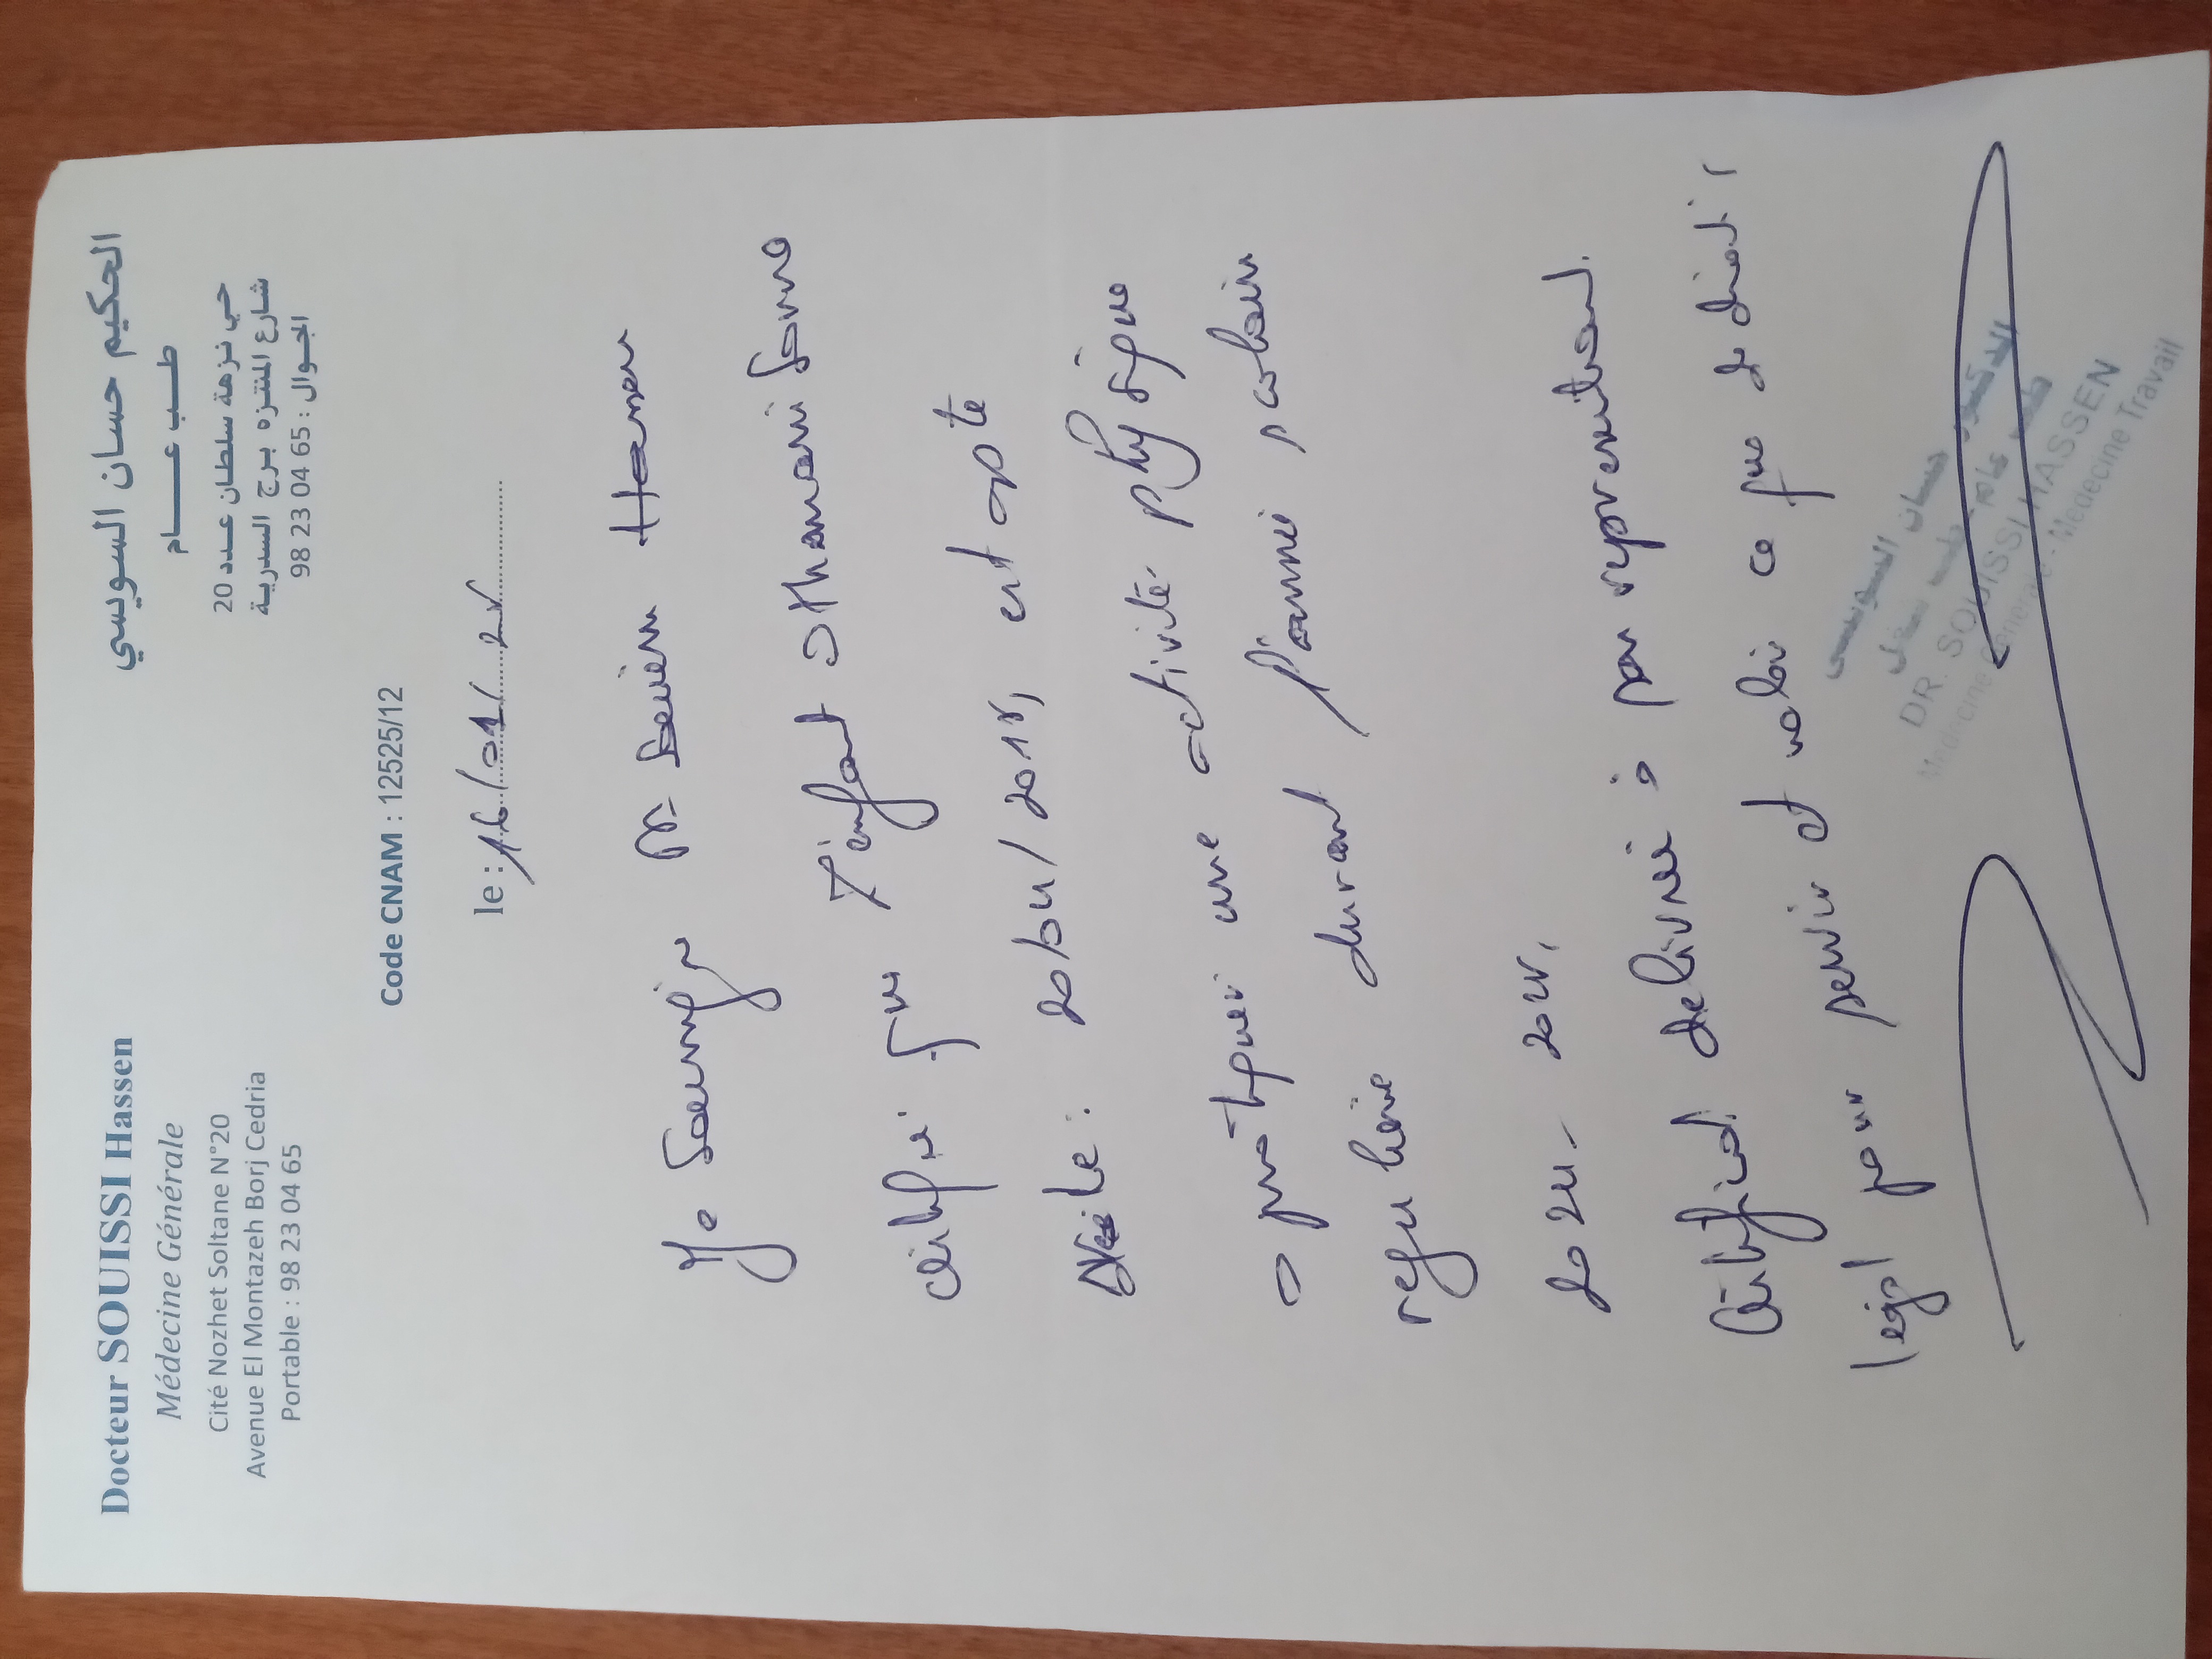 Docteur SOUISSI Hassen
Médecine Générale
Cité Nozhet Soltane N°20
Avenue El Montazeh Borj Cedria
Portable : 98 23 04 65
الحكيم حسان السويسي
طب عام
حي نزهة سلطان عدد 20
شارع المنتزه برج السدرية
الجوال : 98 23 04 65
Code CNAM : 12525/12
le : 16/01/25
Je Soussigné Dr Souissi Hassen
certifie que l'enfant Othmani
est apte
a pratiquer une activité physique
reguliere durant l'année scolaire
2024-2025,
Certificat delivrée à son representant
legal pour servir et valoir ce que de droit
الدكتور حسان السويسي
DR. SOUISSI HASSEN
Medecine Generale - Medecine Travail